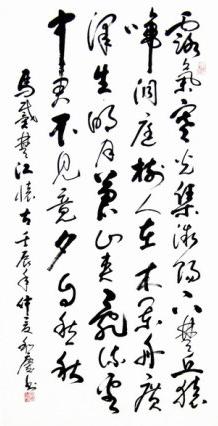 露氣寒光集微陽下楚丘猿
啼洞庭樹人在木蘭舟廣
澤生明月蒼山夾亂流雲
中君不見竟夕自悲秋
馬戴楚江懷古壬辰年仲夏書